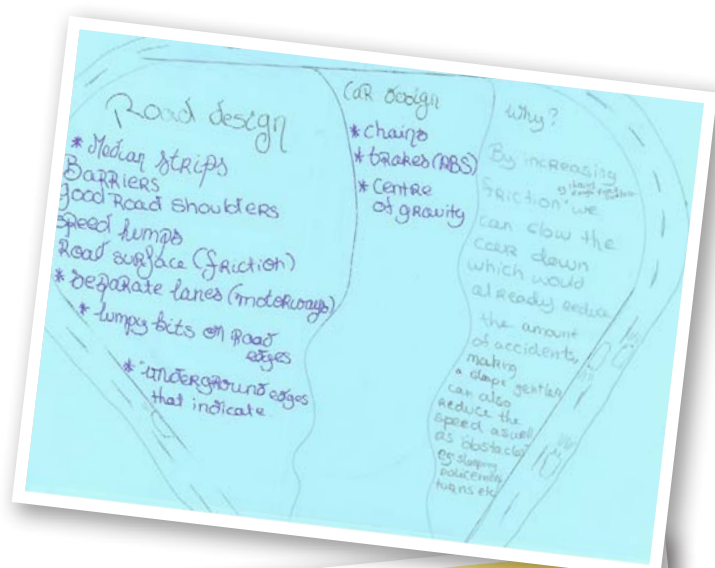 Road design
* Median strips
Barriers
good Road shoulders
speed humps
Road surface (friction)
* separate lanes (motorways)
* lumpy bits on Road
edges
* underground edges
that indicate
Car design
* chains
* brakes (ABS)
* Centre
of gravity
Why?
By increasing
friction we
can slow the
car down
which would
already reduce
the amount
of accidents,
making
a slope gentler
can also
reduce the
speed aswell
as obstacles
eg sleeping
policemen
turns etc